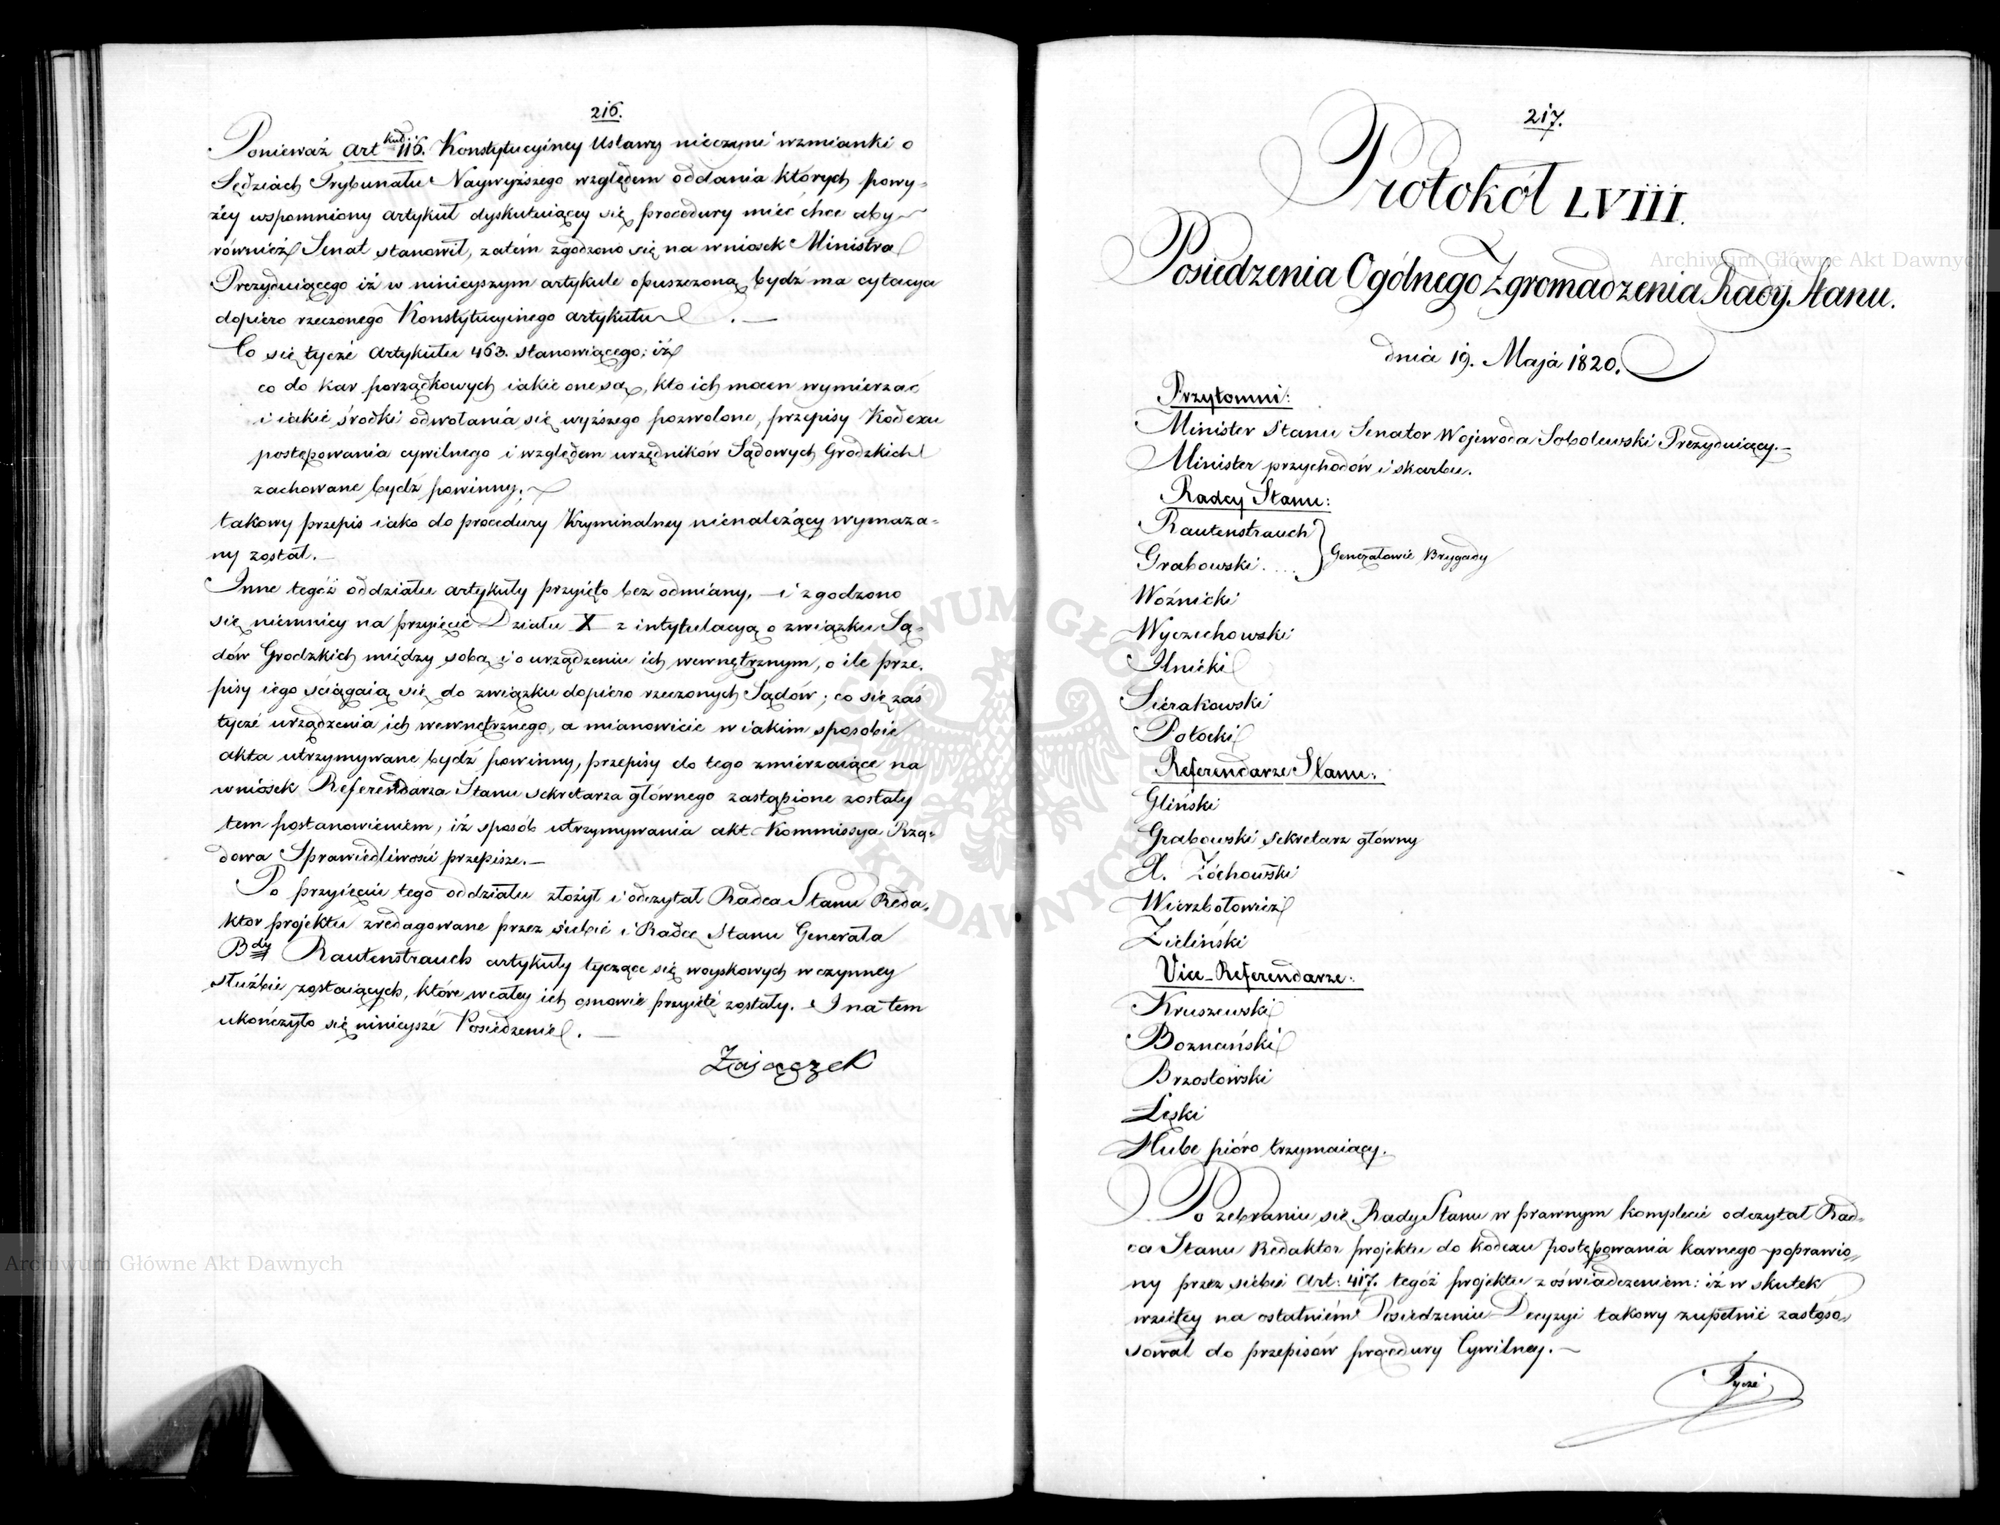 216.
Ponieważ Art^kuł 116. Konstytucyiney Ustawy nieczyni wzmianki o
Sędziach Trybunału Naywyższego względem oddania których powy-
żey wspomniony artykuł dyskutuiącey się procedury mieć chce aby
również Senat stanowił, zatém zgodzono się na wniosek Ministra
Prezyduiącego iż w ninieyszym artykule opuszczoną bydź ma cytacya
dopiero rzeczonego Konstytucyinego artykułu. —
Co się tycze Artykułu 463. stanowiącego; iż
co do kar porządkowych iakie one są, kto ich mocen wymierzać
i iakie środki odwołania się wyższego pozwolone, przepisy Kodexu
postępowania cywilnego i względem urzędników Sądowych Grodzkich
zachowane bydź powinny;
takowy przepis iako do procedury Kryminalney nienależący wymaza-
ny został. —
Inne tegóż oddziału artykuły przyięto bez odmiany, — i zgodzono
się niemniey na przyięcie Działu X z intytulacyą o związku Są-
dów Grodzkich między sobą i o urządzeniu ich wewnętrznym, o ile prze-
pisy iego ściągaią się do związku dopiero rzeczonych Sądów; co się zaś
tycze urządzenia ich wewnętrznego, a mianowicie w iakim sposobie
akta utrzymywane bydź powinny, przepisy do tego zmierzaiące na
wniosek Referendarza Stanu sekretarza głównego zastąpione zostały
tem postanowieniem, iż sposób utrzymywania akt Kommissya Rzą-
dowa Sprawiedliwości przepisze. —
Po przyięciu tego oddziału złożył i odczytał Radca Stanu Reda-
ktor projektu zredagowane przez siebie i Radcę Stanu Generała
B^dy Rautenstrauch artykuły tyczące się woyskowych w czynney
służbie zostaiących, które w całey ich osnowie przyięte zostały. I na tem
ukończyło się ninieysze Posiedzenie. —
Zajączek
217.
Protokół LVIII.
Posiedzenia Ogólnego Zgromadzenia Rady Stanu.
dnia 19. Maja 1820.
Przytomni:
Minister Stanu Senator Wojewoda Sobolewski Prezyduiący. —
Minister przychodów i skarbu.
Radcy Stanu:
Rautenstrauch
Grabowski .... } Generałowie Brygady
Woźnicki
Wyczechowski
Ilnicki
Sierakowski
Potocki
Referendarze Stanu:
Gliński
Grabowski sekretarz główny
X. Żóchowski
Wierzbołowicz
Zieliński
Vice-Referendarze:
Kruszewski
Boznański
Brzostowski
Łęski
Hube pióro trzymaiący.
Po zebraniu się Rady Stanu w prawnym komplecie odczytał Rad-
ca Stanu Redaktor projektu do kodexu postępowania karnego poprawio-
ny przez siebie Art: 417. tegóż projektu z oświadczeniem: iż w skutek
wziętey na ostatniém Posiedzeniu Decyzyi takowy zupełnie zastoso-
sował do przepisów procedury Cywilney. —
Tycze
Archiwum Główne Akt Dawnych
Archiwum Główne Akt Dawnych
ARCHIWUM GŁÓWNE AKT DAWNYCH